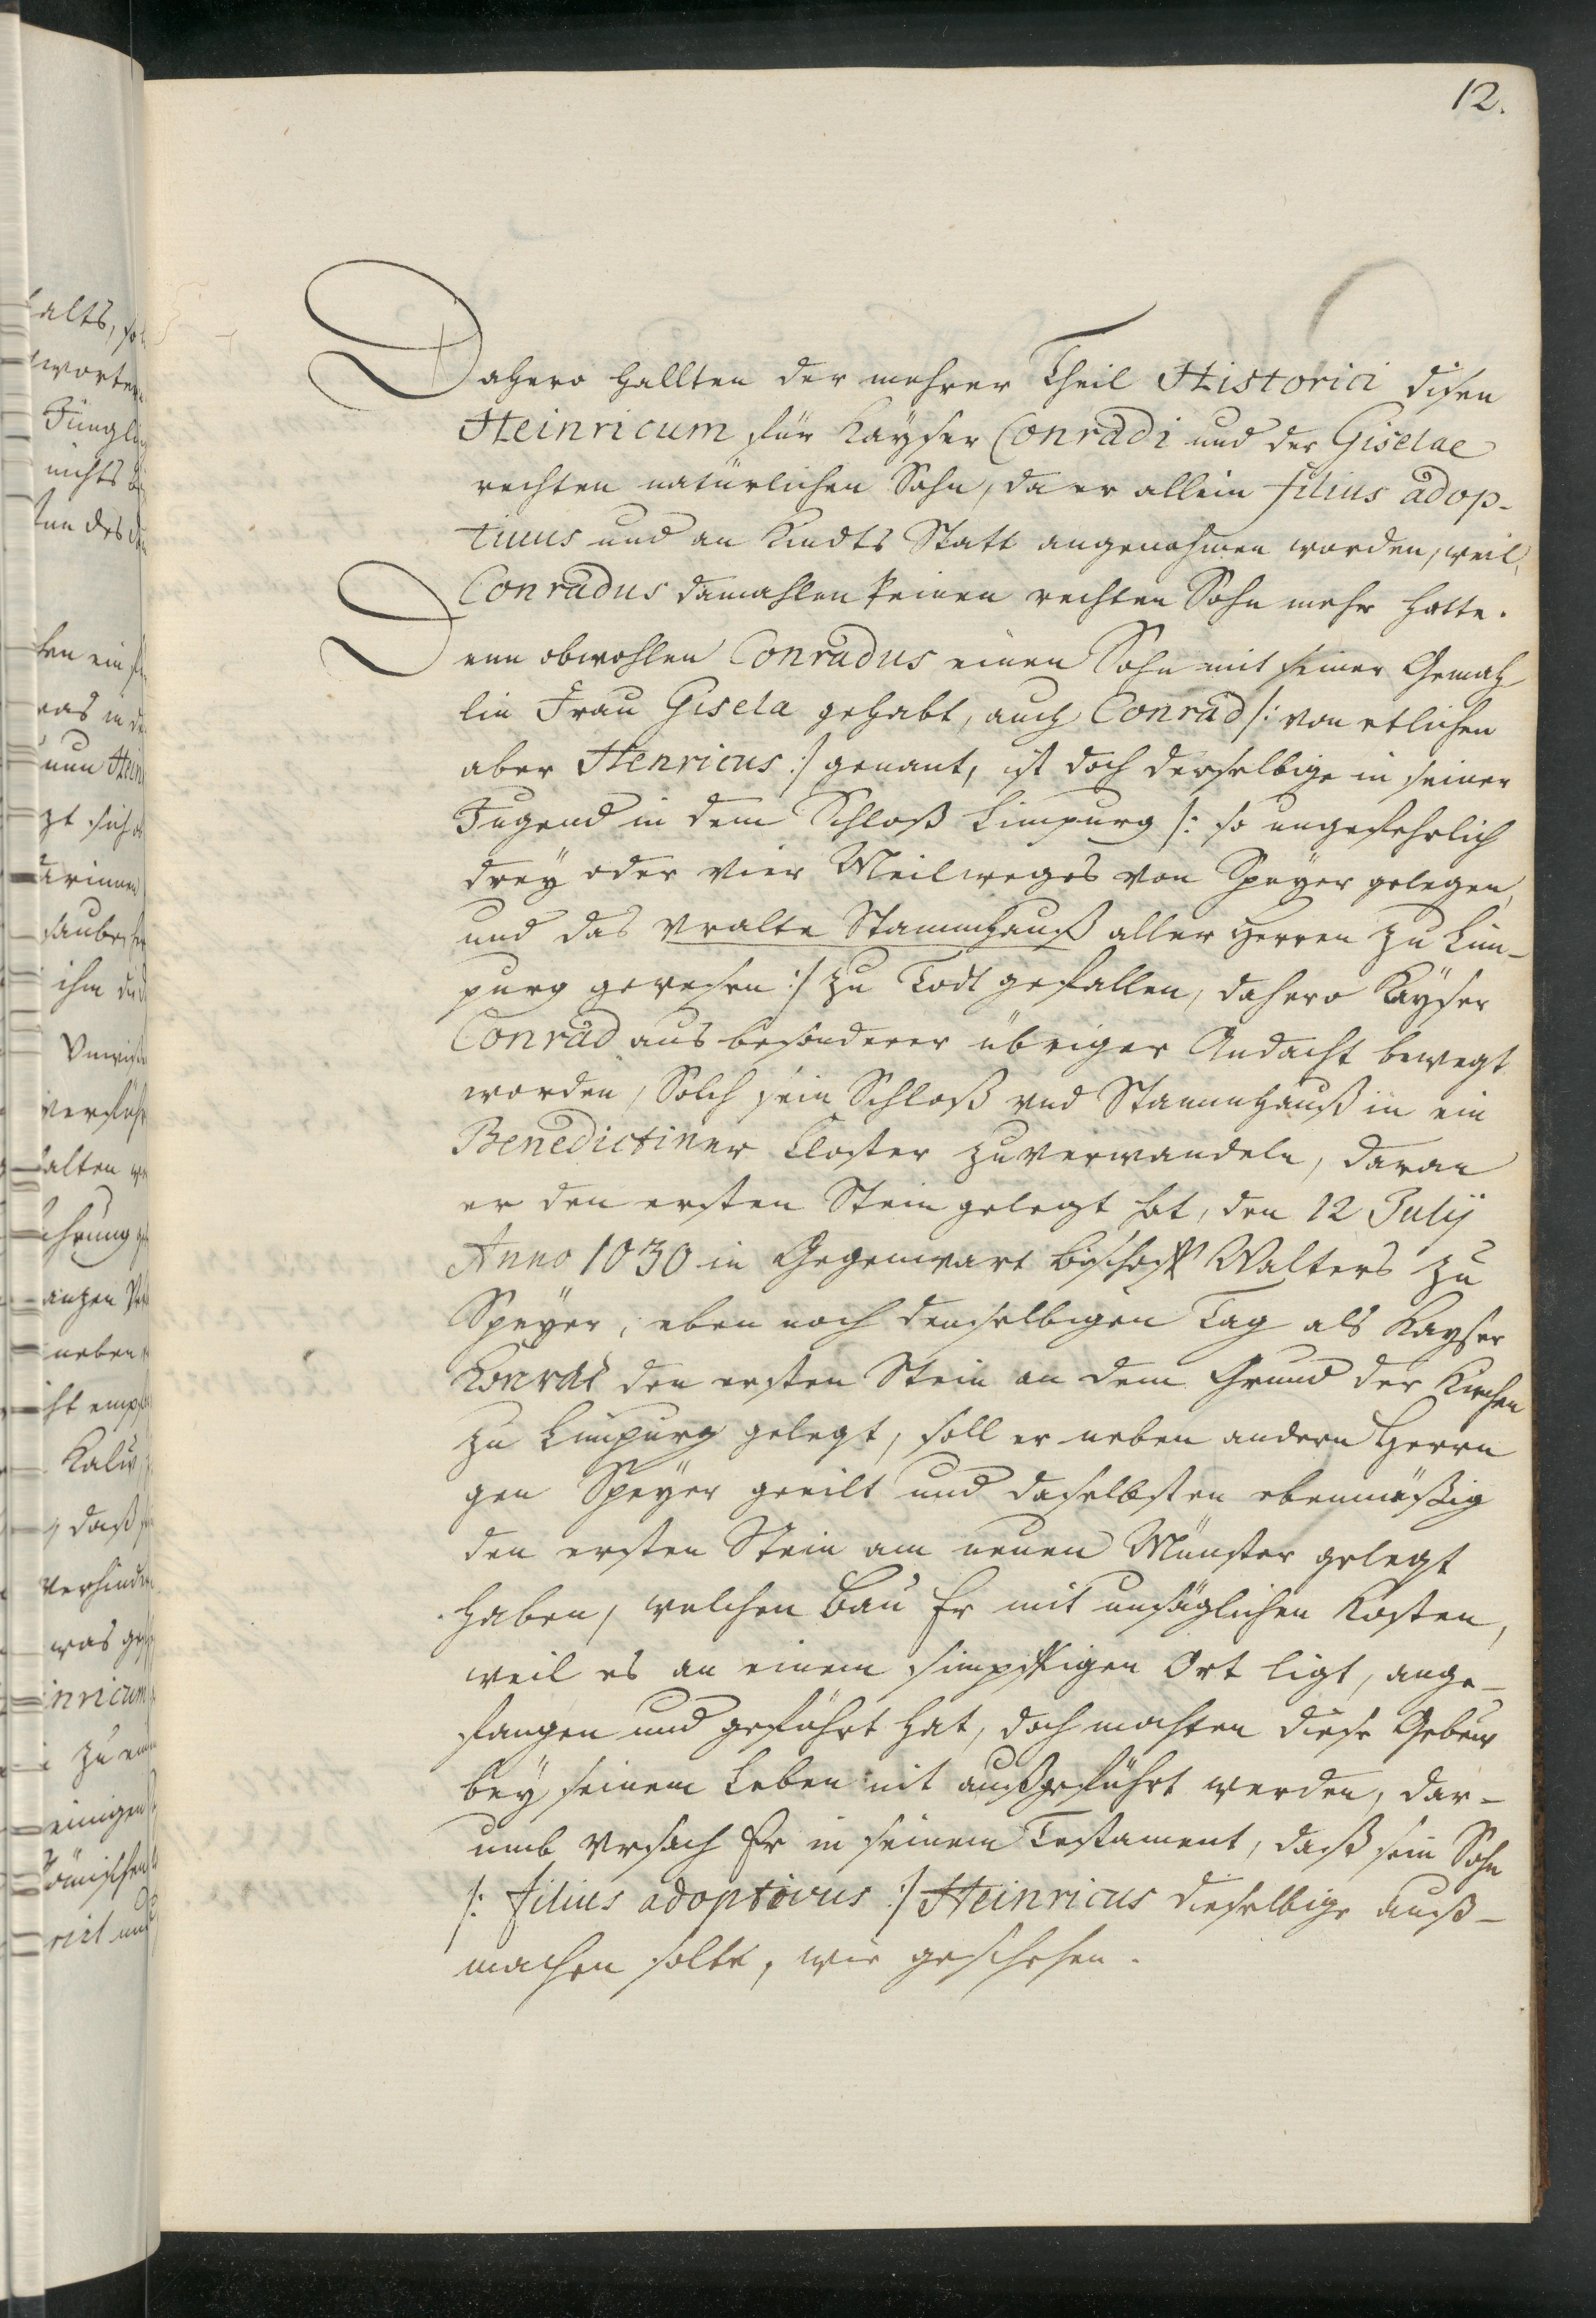 12.
Dahero hallten der mehrer Theil Historici disen
Heinricum für Kayser Conradi und der Giselae
rechten natürlichen Sohn, da er allein filius adop-
tiuus und an Kindts Statt angenohmen worden, weil
Conradus damahlen keinen rechten Sohn mehr hatte.
Denn obwohlen Conradus einen Sohn mit seiner Gemah
lin Frau Gisela gehabt, auch Conrad /: von etlichen
aber Henricus :/ genant, ist doch derselbige in seiner
Jugend in dem Schloß Limpurg /: so ungefehrlich
drey oder vier Meilweges von Speyer gelegen,
und das vralte Stammhauß aller Herren zu Lim-
purg gewesen :/ zu Todt gefallen, dahero Kayser
Conrad aus besonderer übriger Andacht bewegt
worden, Solch sein Schloß vnd Stammhauß in ein
Benedictiner Closter zuverwandeln, daran
er den ersten Stein gelegt hat, den 12 Julij
Anno 1030 in Gegenwart Bischoff Walters zu
Speyer, eben noch denselbigen Tag als Kayser
Konrad den ersten Stein an dem Grund der Kirchen
zu Limpurg gelegt, soll er neben andern Herrn
gen Speyer geeilt und daselbsten ebenmäßig
den ersten Stein am neuen Münster gelegt
haben, welchen Bau Er mit unsäglichen Kosten,
weil es an einem simpftigen Ort ligt, ange-
fangen und geführt hat, doch mochten diese Gebeuw
bey seinem Leben nit außgeführt werden, dar-
umb vrsach Er in seinem Testament, daß sein Sohn
/: filius adoptivus :/ Heinricus dieselbige auß-
machen solte, wie geschehen.